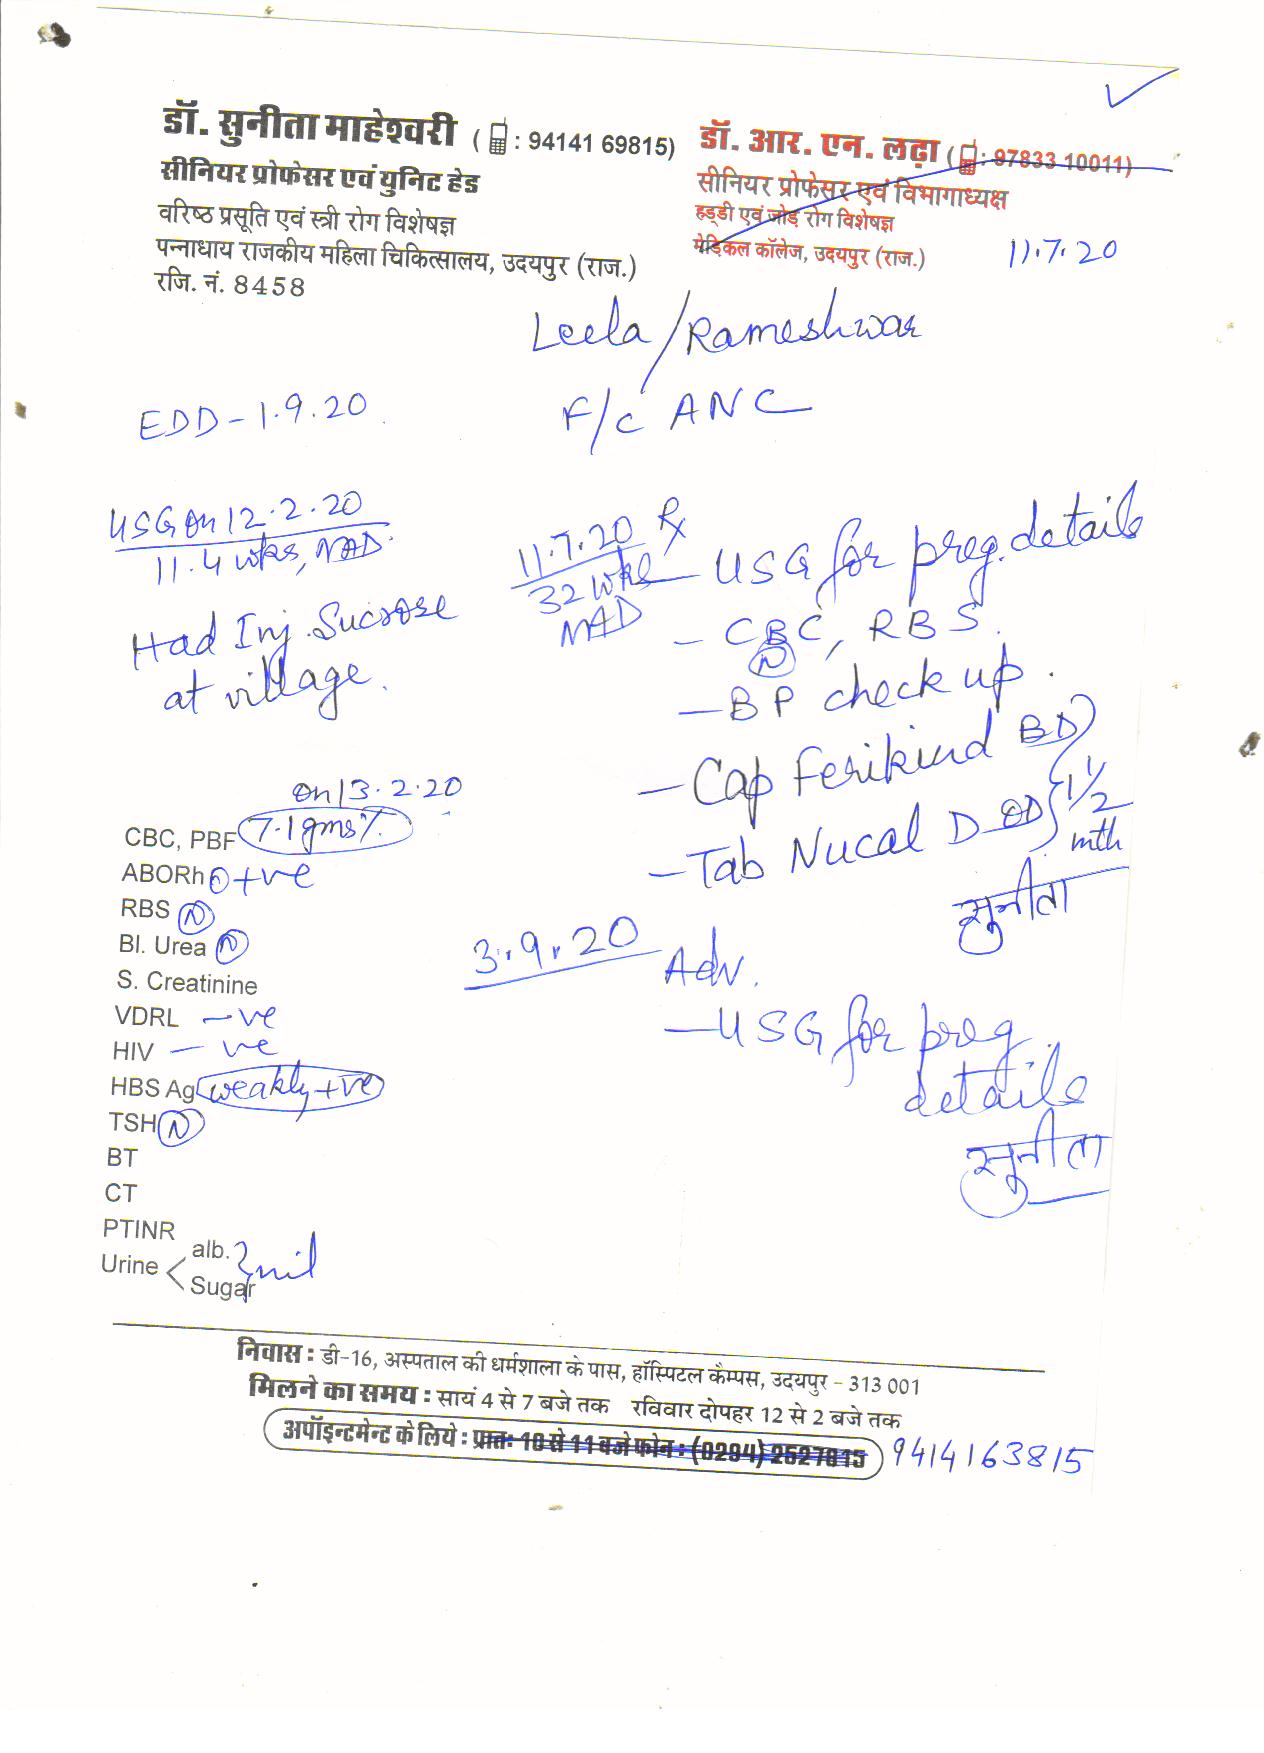 डॉ. सुनीता माहेश्वरी ( : 94141 69815)
सीनियर प्रोफेसर एवं युनिट हेड
वरिष्ठ प्रसूति एवं स्त्री रोग विशेषज्ञ
पन्नाधाय राजकीय महिला चिकित्सालय, उदयपुर (राज.)
रजि. नं. 8458
डॉ. आर. एन. लढ़ा ( : 97833 10011)
सीनियर प्रोफेसर एवं विभागाध्यक्ष
हड्डी एवं जोड़ रोग विशेषज्ञ
मेडिकल कॉलेज, उदयपुर (राज.)
11.7.20
Leela/Rameshwar
EDD - 1.9.20
F/c ANC
USG on 12.2.20
11.4 wks, NAD.
Had Inj. Sucrose
at village.
11.7.20
32 wks
NAD
Rx
- USG for preg. details
- CBC, RBS.
N
- BP check up.
- Cap Ferikind BD
- Tab Nucal D OD
1 1/2
mth
सुनीता
on 13.2.20
CBC, PBF 7.1 gms%
ABORh O +ve
RBS N
Bl. Urea N
S. Creatinine
VDRL - ve
HIV - ve
HBS Ag weakly +ve
TSH N
BT
CT
PTINR
Urine < alb. } nil
Sugar
3.9.20
Adv.
- USG for preg.
details
सुनीता
निवास : डी-16, अस्पताल की धर्मशाला के पास, हॉस्पिटल कैम्पस, उदयपुर - 313 001
मिलने का समय : सायं 4 से 7 बजे तक रविवार दोपहर 12 से 2 बजे तक
अपॉइन्टमेन्ट के लिये : प्रातः 10 से 11 बजे फोन : (0294) 2527815 9414163815